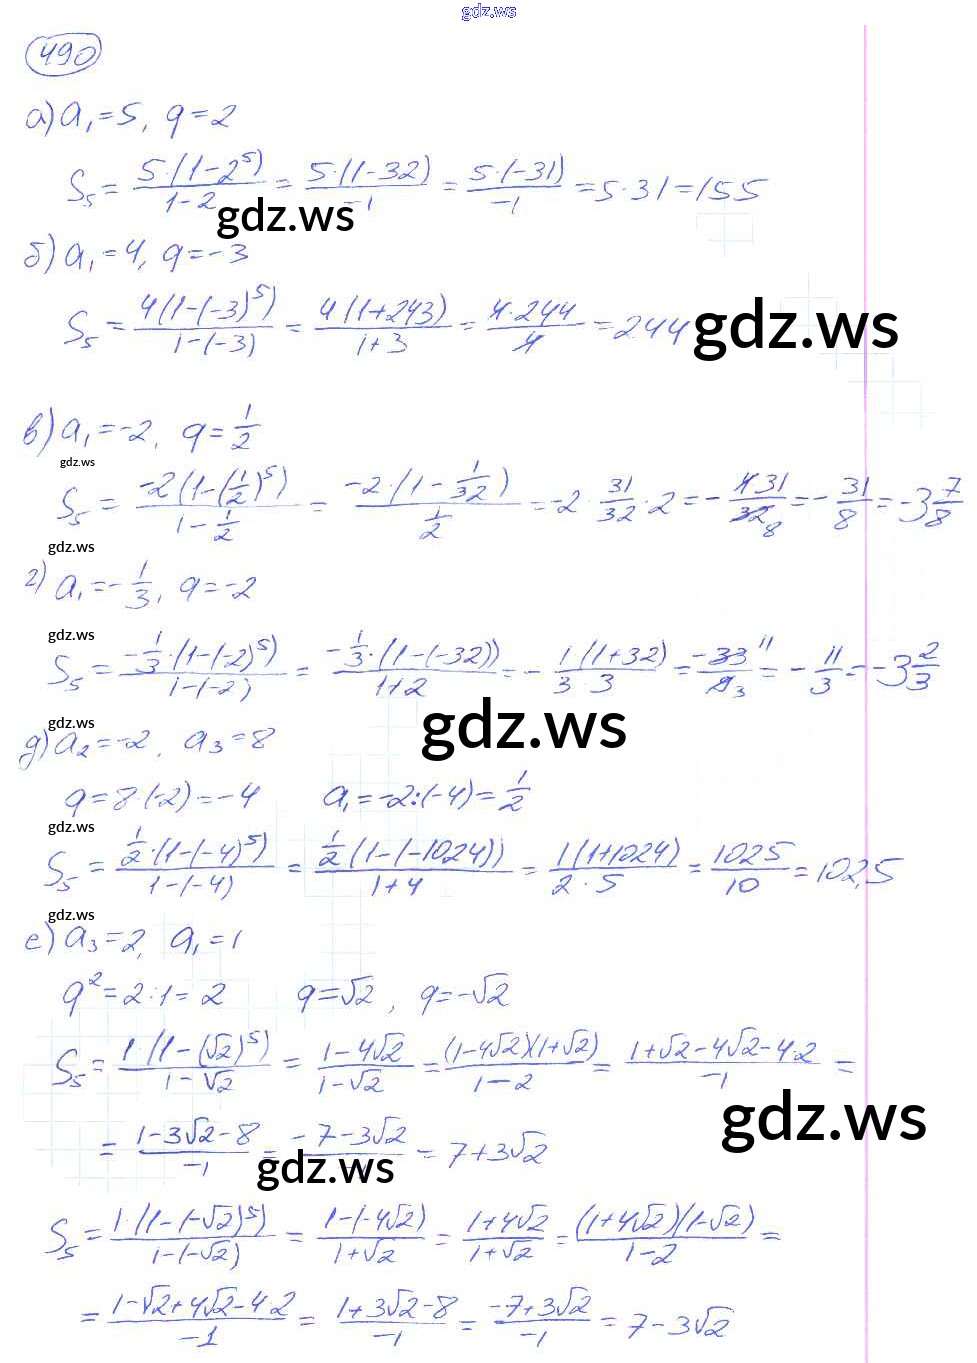 gdz.ws
490
а) a₁ = 5, q = 2
S₅ = 5·(1-2⁵)/(1-2) = 5·(1-32)/-1 = 5·(-31)/-1 = 5·31 = 155
gdz.ws
б) a₁ = 4, q = -3
S₅ = 4(1-(-3)⁵)/(1-(-3)) = 4(1+243)/(1+3) = 4·244/4 = 244
gdz.ws
в) a₁ = -2, q = 1/2
gdz.ws
S₅ = -2(1-(1/2)⁵)/(1-1/2) = -2·(1-1/32)/(1/2) = -2·31/32·2 = -4·31/32 8 = -31/8 = -3 7/8
gdz.ws
г) a₁ = -1/3, q = -2
gdz.ws
S₅ = -1/3·(1-(-2)⁵)/(1-(-2)) = -1/3·(1-(-32))/(1+2) = -1(1+32)/(3·3) = -33 11/9 3 = -11/3 = -3 2/3
gdz.ws
gdz.ws
д) a₂ = -2, a₃ = 8
q = 8:(-2) = -4 a₁ = -2:(-4) = 1/2
gdz.ws
S₅ = 1/2·(1-(-4)⁵)/(1-(-4)) = 1/2(1-(-1024))/(1+4) = 1(1+1024)/(2·5) = 1025/10 = 102,5
gdz.ws
е) a₃ = 2, a₁ = 1
q² = 2:1 = 2 q = √2, q = -√2
S₅ = 1·(1-(√2)⁵)/(1-√2) = (1-4√2)/(1-√2) = (1-4√2)(1+√2)/(1-2) = (1+√2-4√2-4·2)/-1 =
gdz.ws
= (1-3√2-8)/-1 = (-7-3√2)/-1 = 7+3√2
gdz.ws
S₅ = 1·(1-(-√2)⁵)/(1-(-√2)) = (1-(-4√2))/(1+√2) = (1+4√2)/(1+√2) = (1+4√2)(1-√2)/(1-2) =
= (1-√2+4√2-4·2)/-1 = (1+3√2-8)/-1 = (-7+3√2)/-1 = 7-3√2